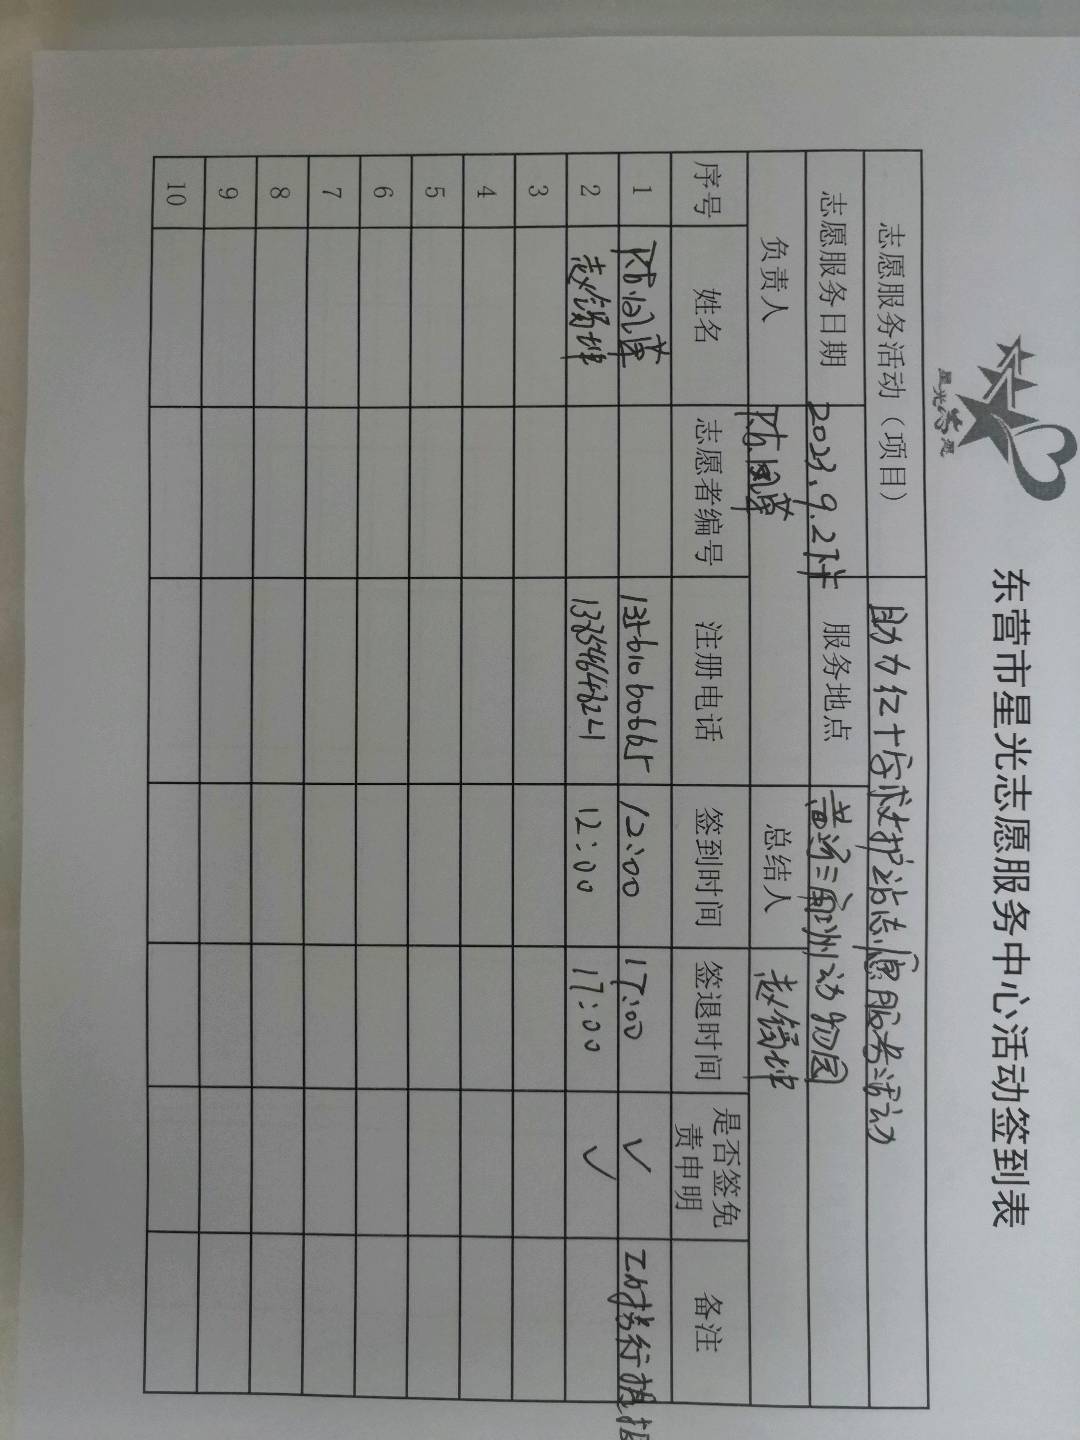 星光志愿
东营市星光志愿服务中心活动签到表
志愿服务活动（项目） 助力红十字救护站志愿服务活动
志愿服务日期 2023.9.27 服务地点 黄河三角洲动物园
负责人 陈凤萍 总结人
序号 姓名 志愿者编号 注册电话 签到时间 签退时间 是否签免责申明 备注
1 陈凤萍 13561060665 12:00 17:00 ✓
2 12:00 17:00 ✓
3
4
5
6
7
8
9
10